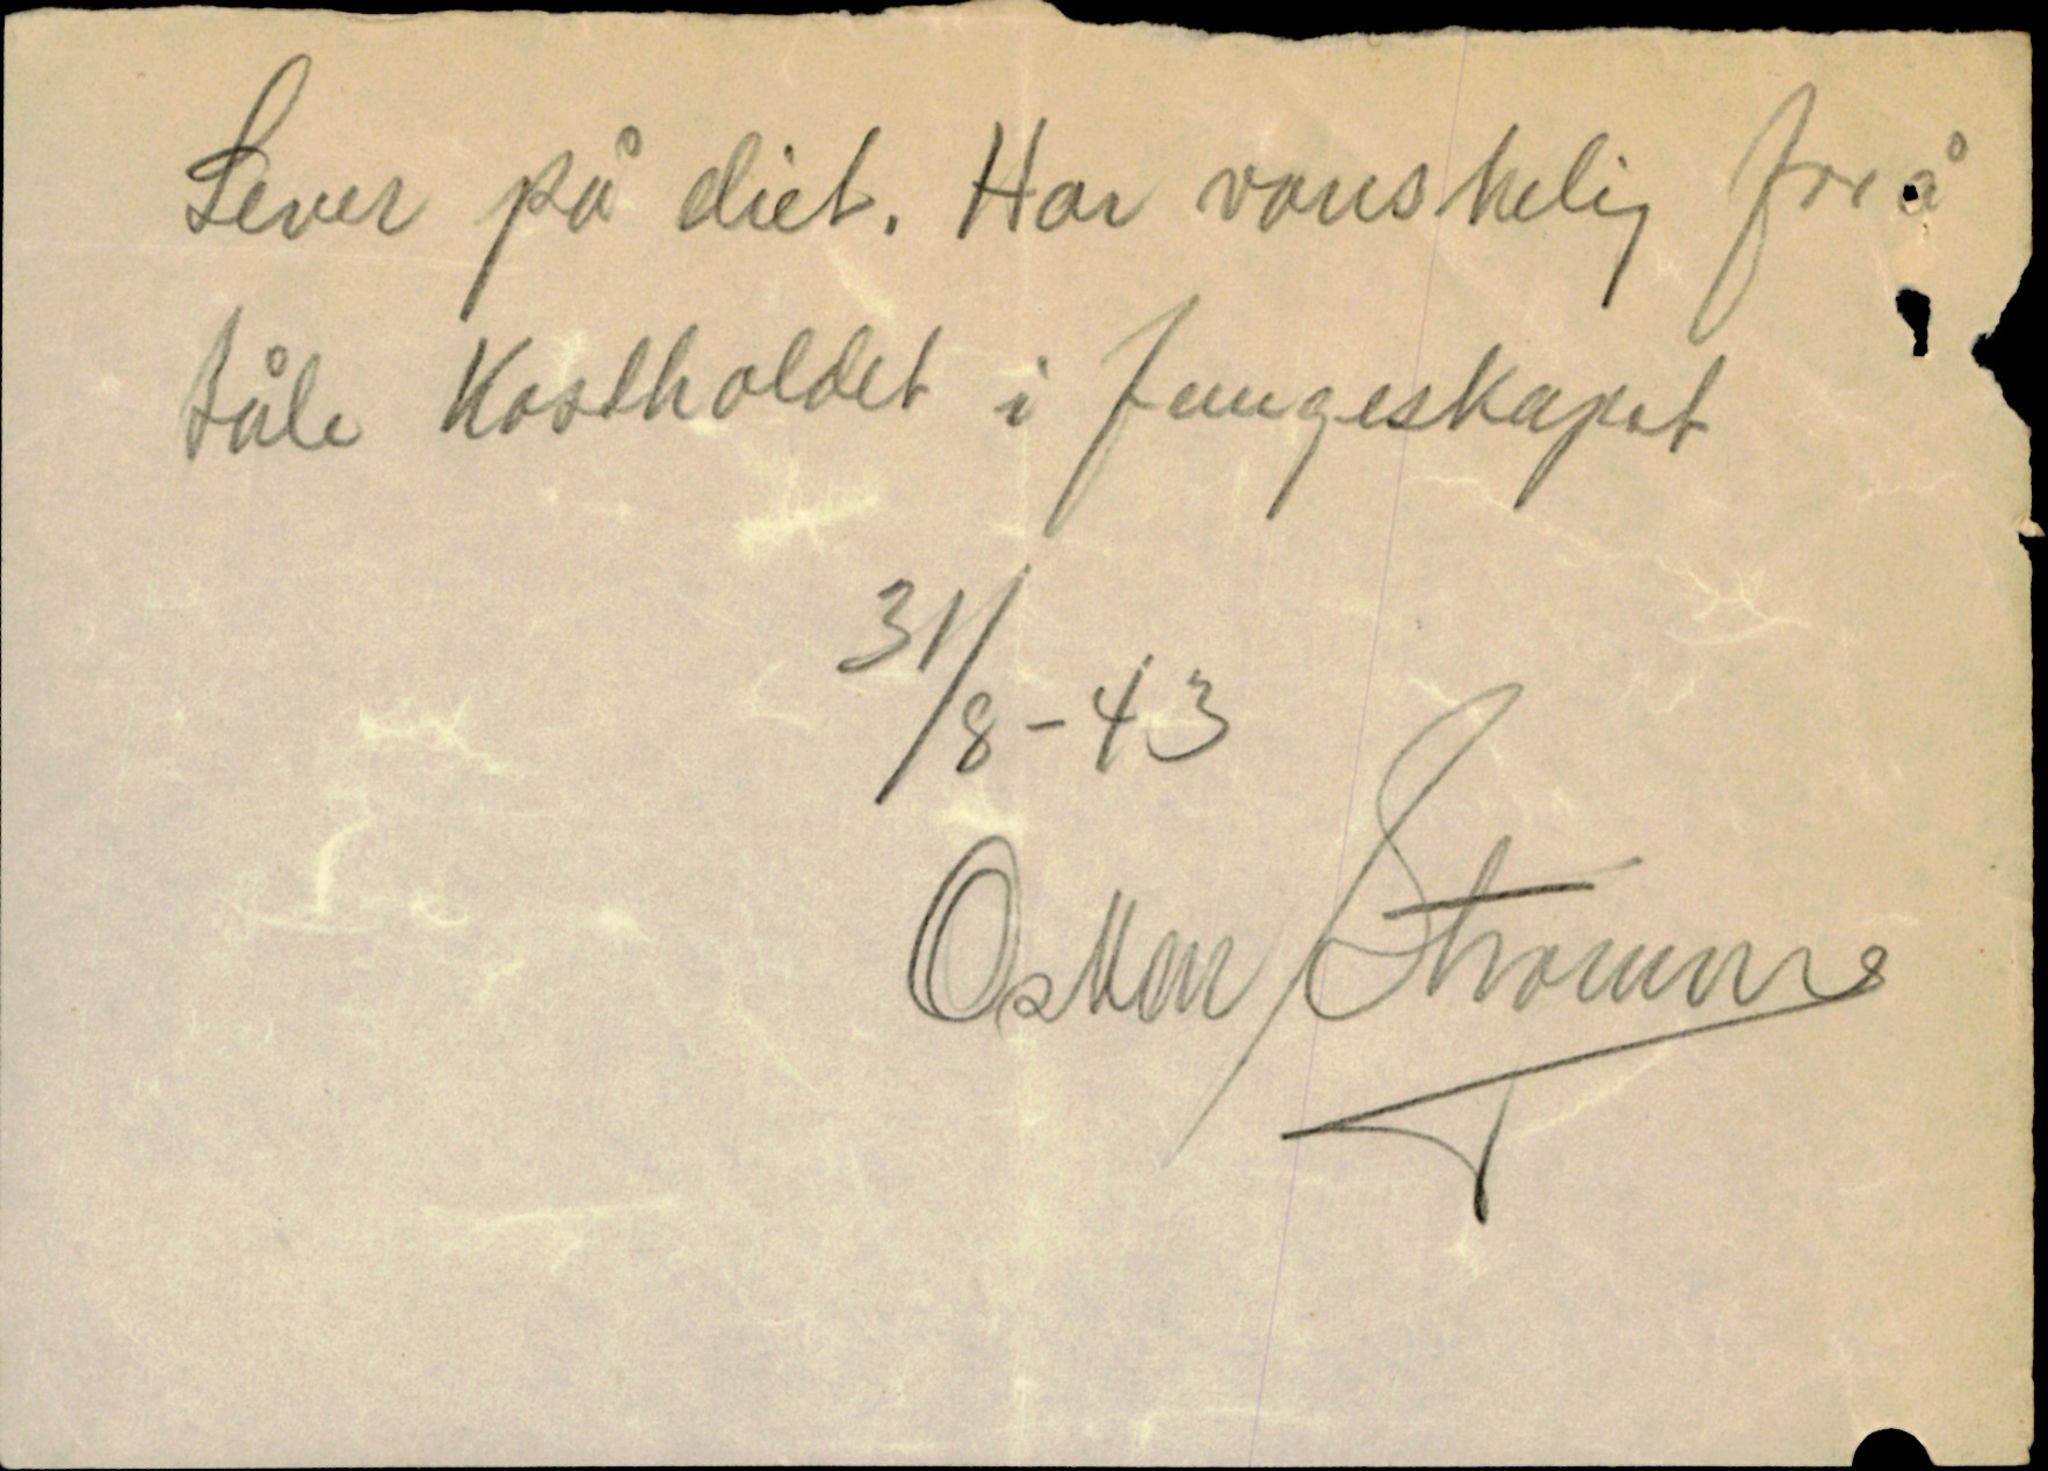 Lever på diet. Har vanskelig for å
tåle Kostholdet i fangeskapet
31/8-43
Oskar Strømme